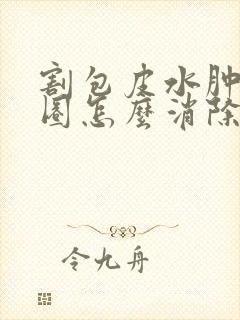 割包皮水肿
圈怎麼消除
令九舟